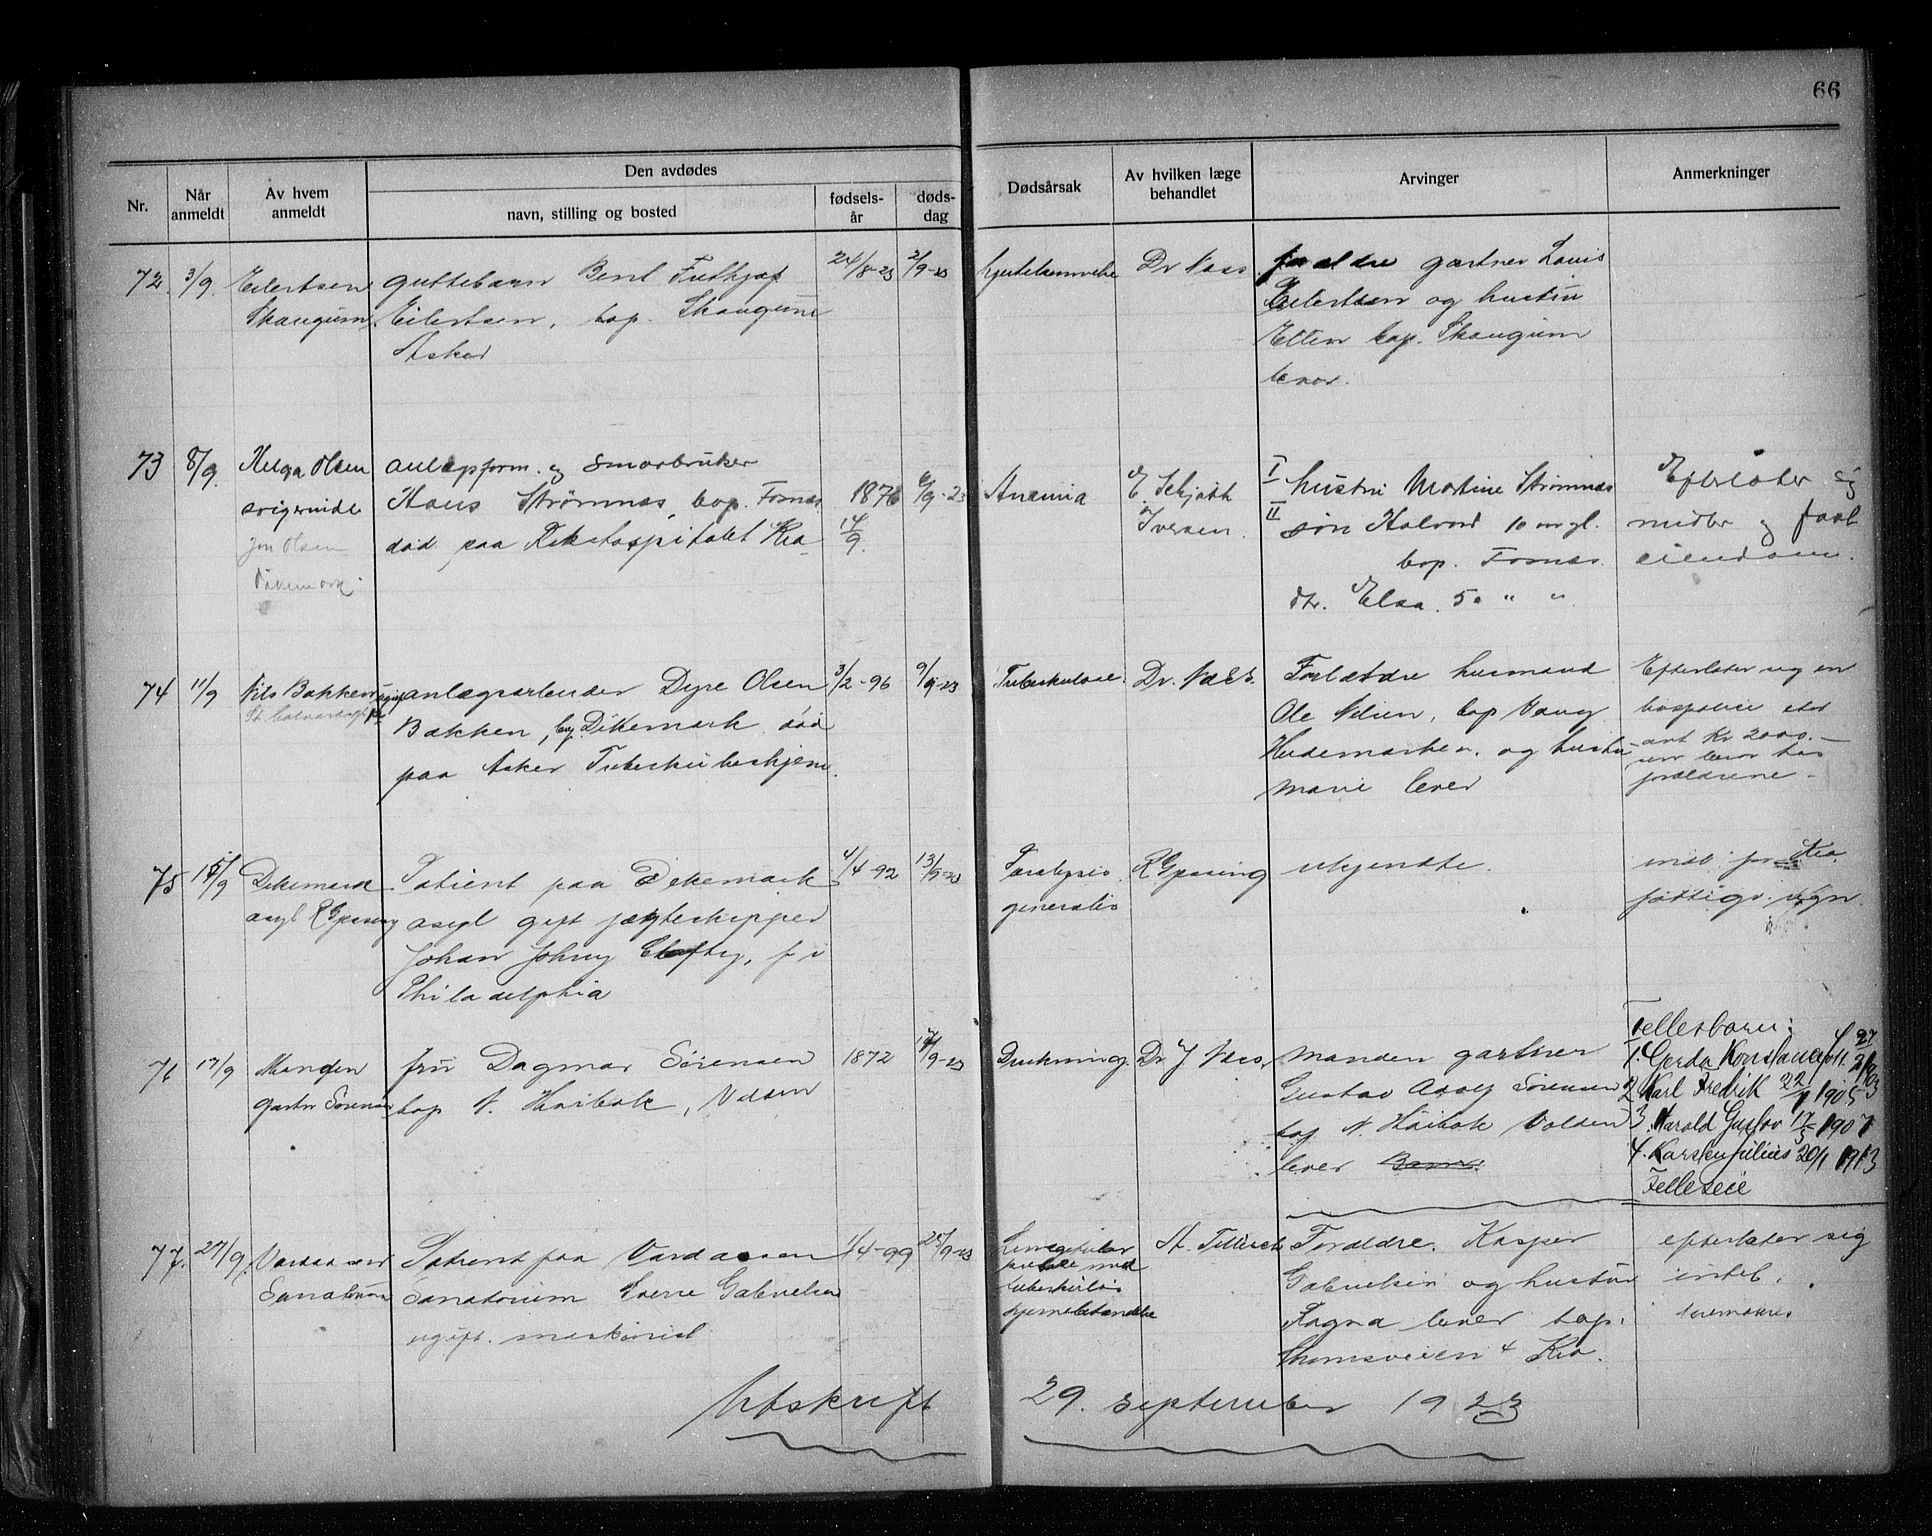 66
Nr.
Når anmeldt
Av hvem anmeldt
Den avdødes
navn, stilling og bosted
fødsels-år
døds-dag
Dødsårsak
Av hvilken læge behandlet
Arvinger
Anmerkninger
72. 3/9.
Eilertsen
Skaugum
guttebarn Bent
Eilertsen, bop. Skaugum
Asker
24/8-23
2/9-23
Dr Næss
foreldre gartner Louis
Eilertsen og hustru
bop. Skaugum
lever.
73 8/9.
Helga Olsen
svigerinde
Jon Olsen
Dikemark.
anlægsform. og smaabruker
Hans Strømnes, bop. Fornes
død paa Rikshospitalet Kra
1876
14/9.
6/9-23
Anemia
E. Schjøth
Iversen.
I hustru Martine Strømnes
II søn Halvord 10 aar gl.
bop. Fornes.
dtr. Elsa. 5 " "
Efterlater sig
midler og fast
eiendom.
74 11/9
Nils Bakken
anlægsarbeider Dyre Olsen
Bakken, Dikemark død
paa Asker Tuberkuloshjem.
3/2-96
9/9-23
Tuberkulose.
Dr. Næss.
Forældre husmand
Ole Nilsen, bop Vang
Hedemarken. og hustru
Marie lever
Efterlater sig en
Kr 2000.-
forældrene -
75 15/9
Dikemark
asyl R Gjessing
Patient paa Dikemark
asyl gift jægteskipper
Johan Johny, f i
Philadelphia
4/4-92
13/9-23
Paralysis
generalis
R Gjessing
ukjendte.
indl. for Kra
fattigv.
76 17/9
Manden
gartn Sørensen
fru Dagmar Sørensen
bop N. Haibok, Valsen
1872
14/9-23
Drukning.
Dr J Næss
manden gartner
Gustav Adolf Sørensen
bop N. Haibok Valsen
lever
Fellesbarn:
1. Gerda Konstance f.
2 Karl Fredrik 22/1 1905
3. Harald Gustav 17/5 1907
4. Karsten Julius 20/1 1913
Felleseie
77. 27/9.
Vardaasen
Sanatorium
Patient paa Vardaasen
Sanatorium Sverre Gabrielsen
ugift. maskinist
1/4-99
25/9-23
Lungetuber
kulose med
tuberkuløs
hjernebetændelse
A. Tillisch
Foreldre. Kasper
Gabrielsen og hustru
Ragna lever bop.
Thomsveien 4 Kra.
efterlater sig
intet.
Utskrift 29. september 1923